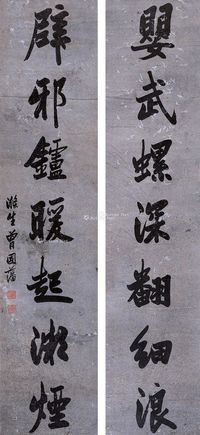 嬰武螺深翻細浪
辟邪鑪暖起微煙
滌生曾國藩